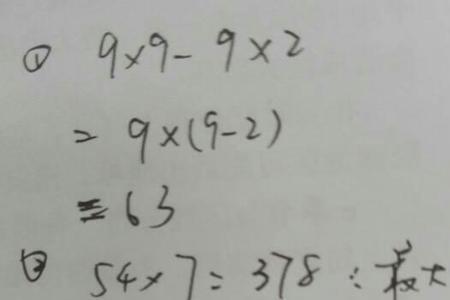 ① 9×9-9×2
= 9×(9-2)
= 63
② 54×7=378 : 最大